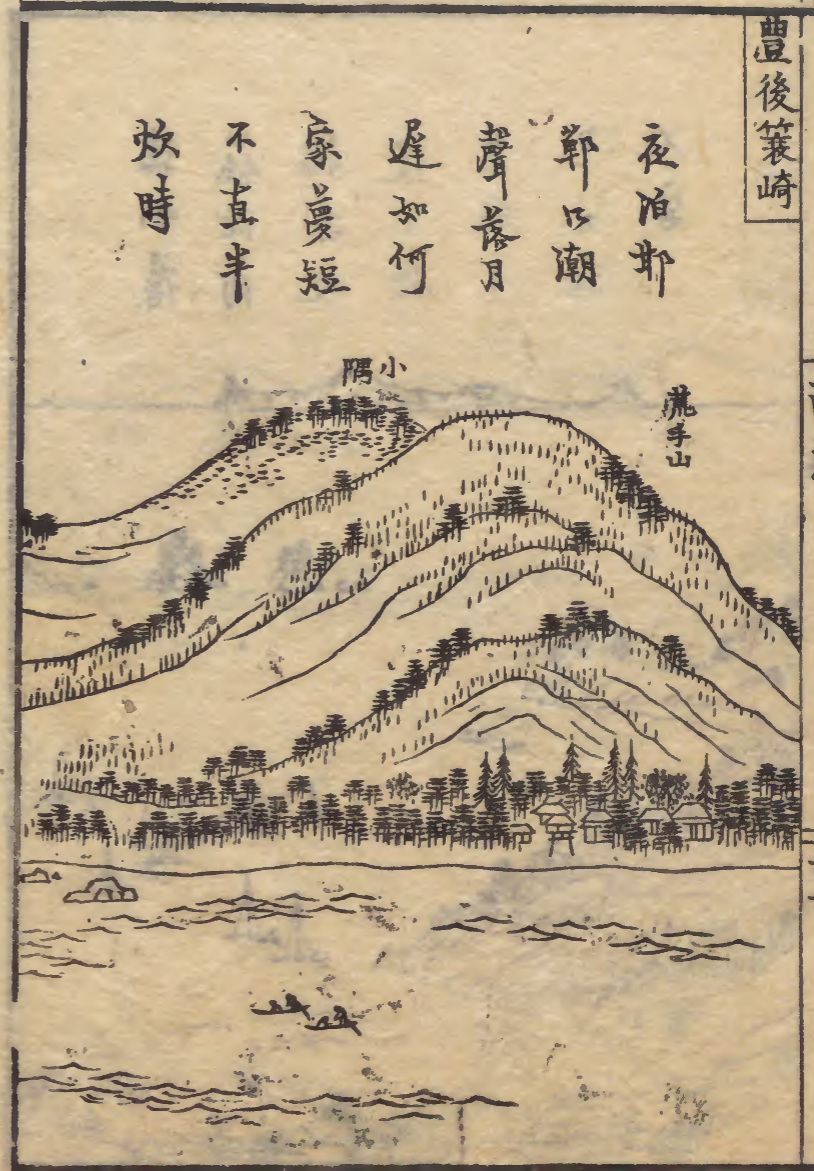 豊後簑崎
夜泊邯
鄲口潮
聲落月
遅如何
家夢短
不直半
炊時
小隅